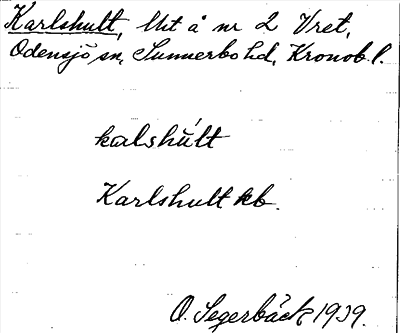 Karlshult, lht å nr 2 Vret,
Odensjö sn, Sunnerbo hd, Kronob. l.
kalshúlt
Karlshult kb.
O. Segerbäck 1939.